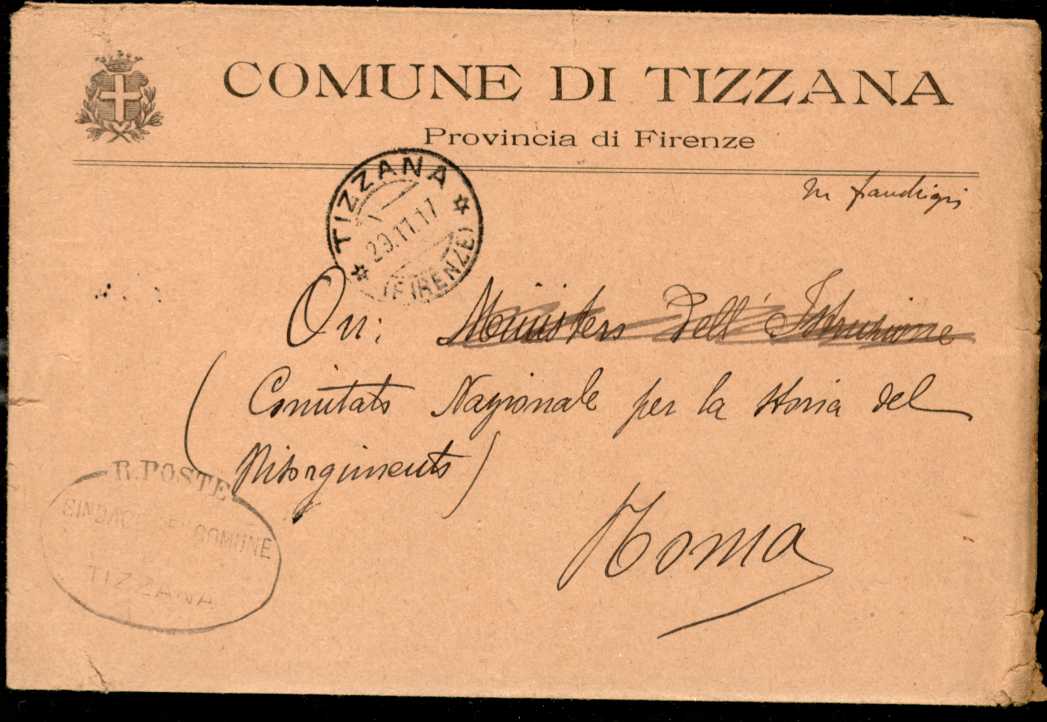 COMUNE DI TIZZANA
Provincia di Firenze
TIZZANA
29.11.17
(FIRENZE)
On: Ministero dell'Istruzione
(Comitato Nazionale per la storia del
Risorgimento)
Roma
R. POSTE
SINDACO DEL COMUNE
TIZZANA